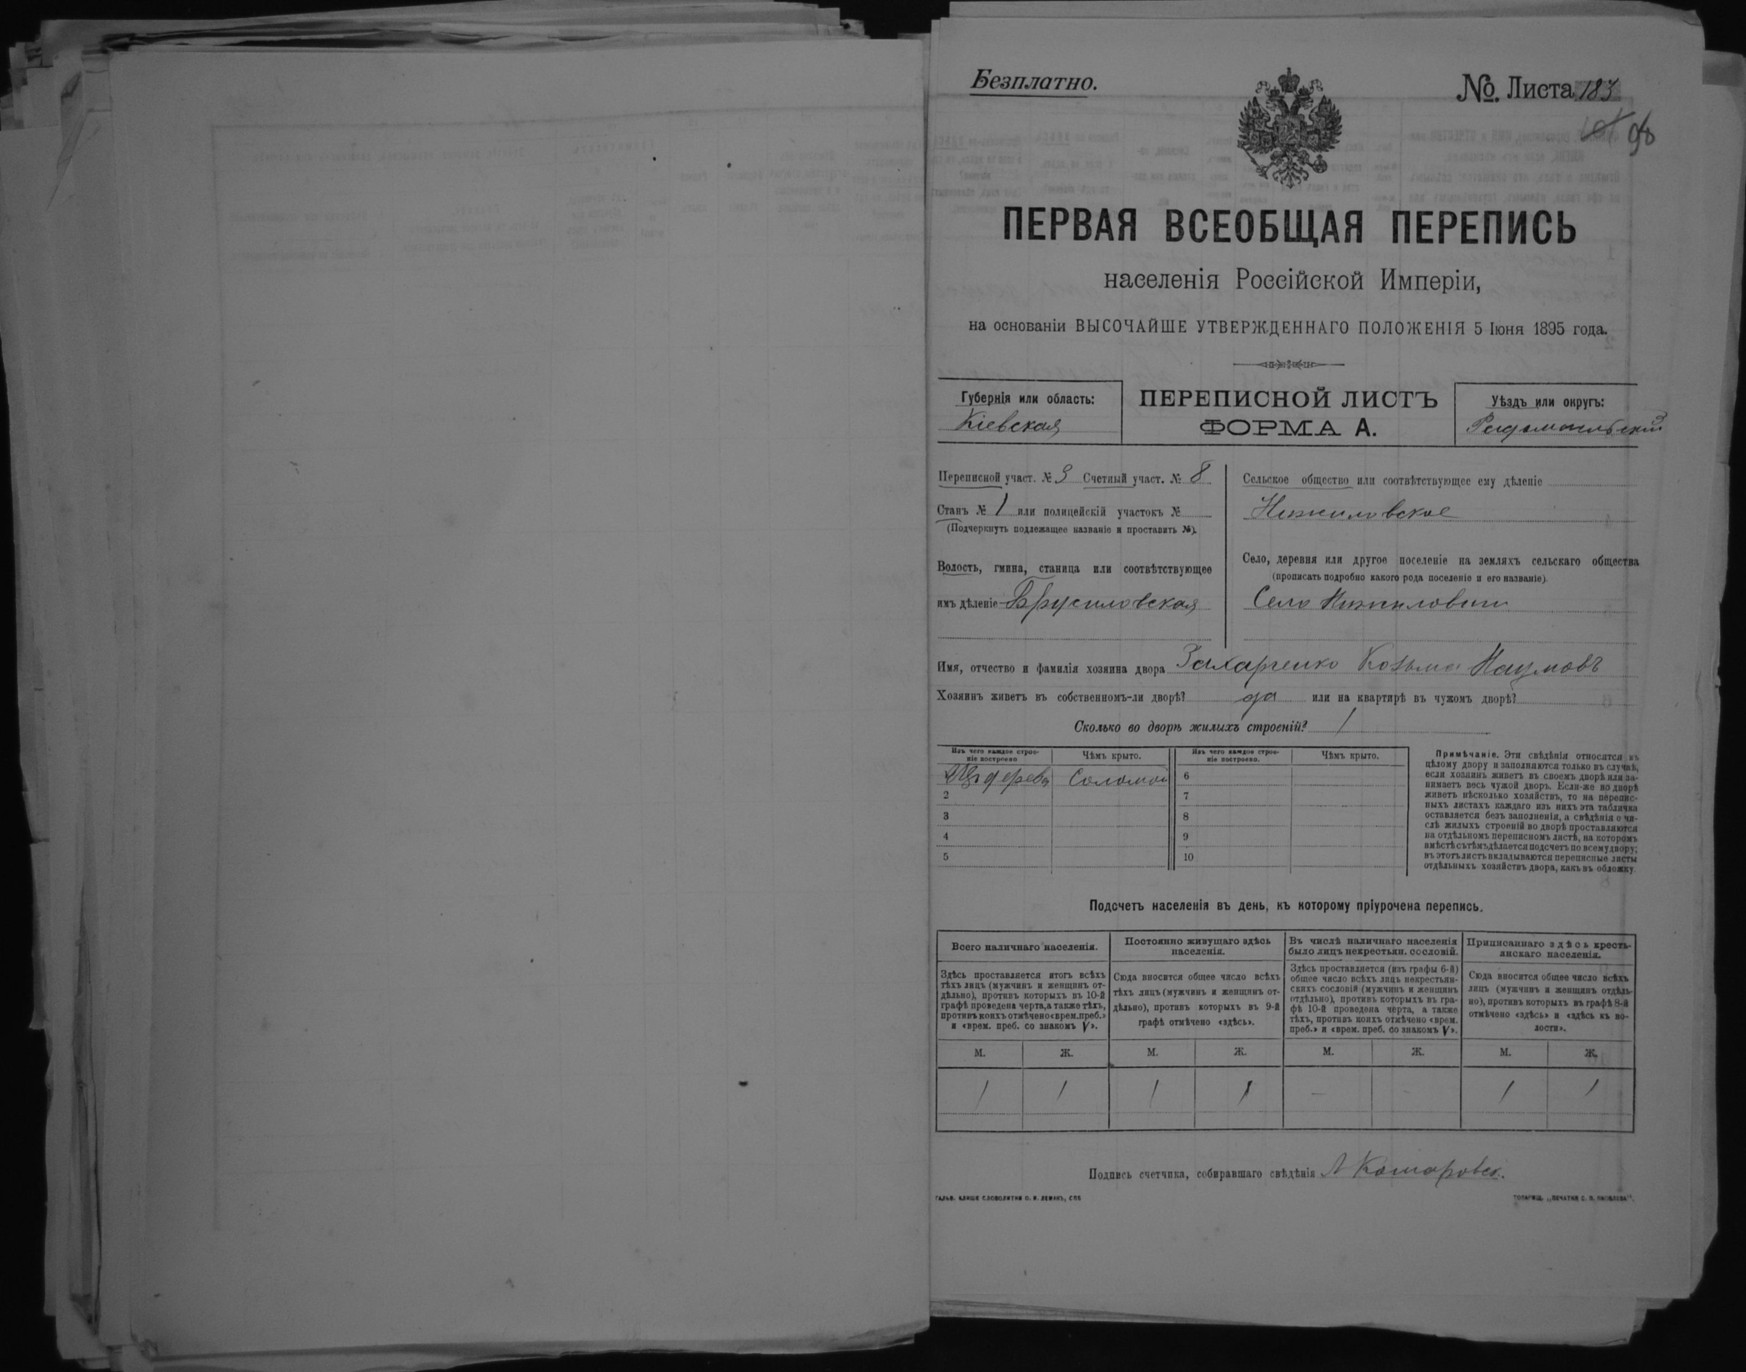 Безплатно.
№. Листа 183
98
ПЕРВАЯ ВСЕОБЩАЯ ПЕРЕПИСЬ
населенія Россійской Имперіи,
на основаніи ВЫСОЧАЙШЕ УТВЕРЖДЕННАГО ПОЛОЖЕНІЯ 5 Іюня 1895 года.
Губернія или область:
Кіевская
ПЕРЕПИСНОЙ ЛИСТЪ
ФОРМА А.
Уѣздъ или округъ:
Радомысльскій
Переписной участ. № 3 Счетный участ. № 8
Станъ № 1 или полицейскій участокъ №
(Подчеркнуть подлежащее названіе и проставить №).
Волость, гмина, станица или соотвѣтствующее
имъ дѣленіе Брусиловская
Сельское общество или соотвѣтствующее ему дѣленіе
Нижиловское
Село, деревня или другое поселеніе на земляхъ сельскаго общества
(прописать подробно какого рода поселеніе и его названіе)
Село Нижиловичи
Имя, отчество и фамилія хозяина двора Захарченко Козьма Наумовъ
Хозяинъ живетъ въ собственномъ-ли дворѣ? да или на квартирѣ въ чужомъ дворѣ?
Сколько во дворѣ жилыхъ строеній? 1
Изъ чего каждое строеніе построено
Чѣмъ крыто.
Изъ чего каждое строеніе построено.
Чѣмъ крыто.
Изъ дерева Соломой 6
2 7
3 8
4 9
5 10
Примѣчаніе. Эти свѣдѣнія относятся къ
цѣлому двору и заполняются только въ случаѣ,
если хозяинъ живетъ въ своемъ дворѣ или за-
нимаетъ весь чужой дворъ. Если-же во дворѣ
живетъ нѣсколько хозяйствъ, то на перепис-
ныхъ листахъ каждаго изъ нихъ эта табличка
оставляется безъ заполненія, а свѣдѣнія о чи-
слѣ жилыхъ строеній во дворѣ проставляются
на отдѣльномъ переписномъ листѣ, на которомъ
вмѣстѣ съ тѣмъ дѣлается подсчетъ по всему двору;
въ этотъ листъ вкладываются переписные листы
отдѣльныхъ хозяйствъ двора, какъ въ обложку.
Подсчетъ населенія въ день, къ которому пріурочена перепись.
Всего наличнаго населенія.
Здѣсь проставляется итогъ всѣхъ
тѣхъ лицъ (мужчинъ и женщинъ от-
дѣльно), противъ которыхъ въ 10-й
графѣ проведена черта, а также тѣхъ,
противъ коихъ отмѣчено «врем. преб.»
и «врем. преб. со знакомъ V».
Постоянно живущаго здѣсь
населенія.
Сюда вносится общее число всѣхъ
тѣхъ лицъ (мужчинъ и женщинъ от-
дѣльно), противъ которыхъ въ 9-й
графѣ отмѣчено «здѣсь».
Въ числѣ наличнаго населенія
было лицъ некрестьян. сословій.
Здѣсь проставляется (изъ графы 6-й)
общее число всѣхъ лицъ некрестьян-
скихъ сословій (мужчинъ и женщинъ
отдѣльно), противъ которыхъ въ гра-
фѣ 10-й проведена черта, а также
тѣхъ, противъ коихъ отмѣчено «врем.
преб.» и «врем. преб. со знакомъ V».
Приписаннаго здѣсь кресть-
янскаго населенія.
Сюда вносится общее число всѣхъ
лицъ (мужчинъ и женщинъ отдѣль-
но), противъ которыхъ въ графѣ 8-й
отмѣчено «здѣсь» и «здѣсь въ во-
лости».
М. Ж. М. Ж. М. Ж. М. Ж.
1 1 1 1 – - 1 1
Подпись счетчика, собиравшаго свѣдѣнія Комаровск.